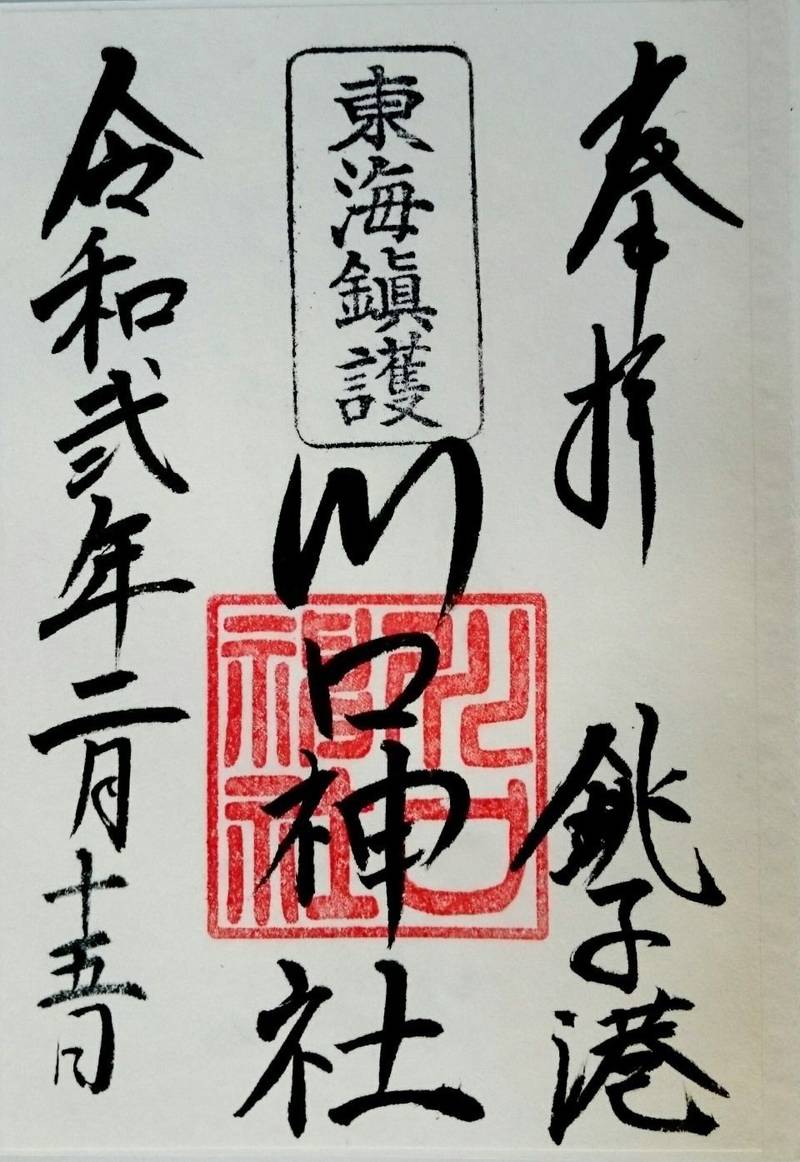 奉拝
銚子港
東海鎮護
川口神社
川口神社
令和弐年二月十五日